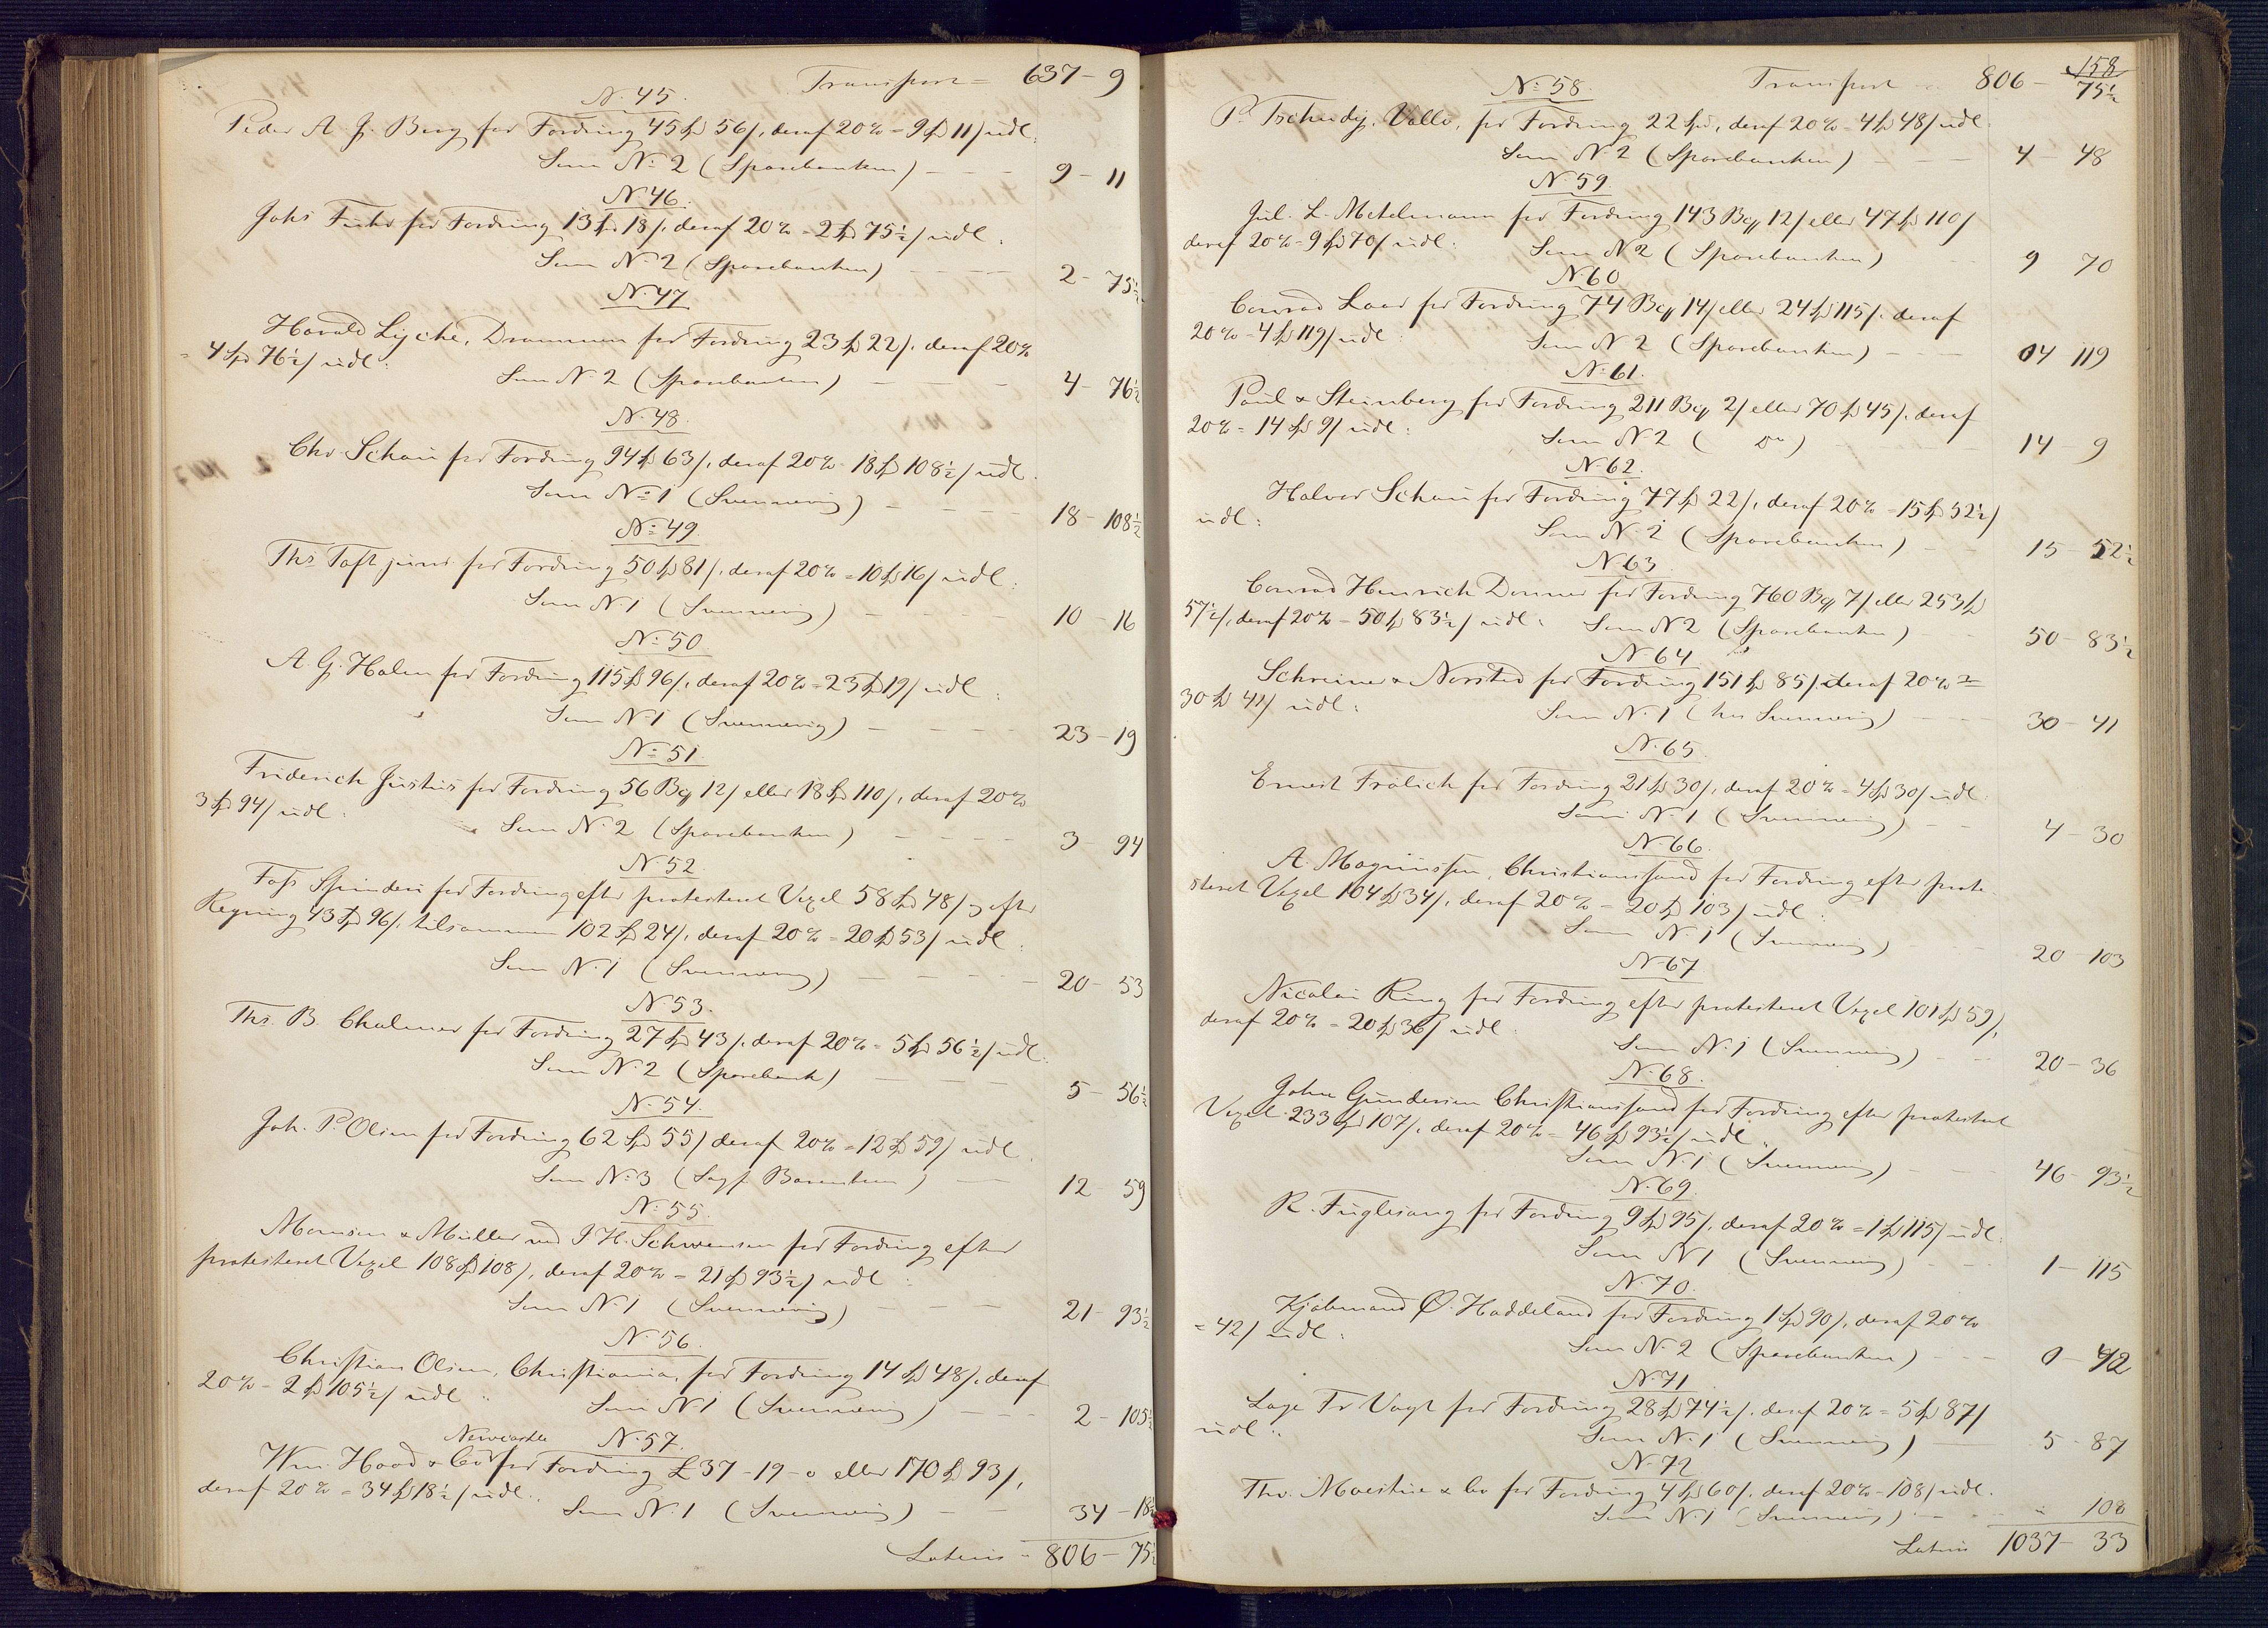 Transport = 637 - 9
N. 45.
Peder A. J. Berg for Fordring 45 Spd 56/, deraf 20% = 9 Spd 11/ udl.
Sum No 2 (Sparebanken) - - - 9 - 11
N. 46.
Johs for Fordring 13 Spd 18/, deraf 20% = 2 Spd 75½/ udl.
Sum No 2 (Sparebanken) - - - 2 - 75½
N. 47
Harald Lyche, Drammen for Fordring 23 Spd 22/. deraf 20%
= 4 Spd 76½/ udl:
Sum No 2 (Sparebanken) - - - 4 - 76½
N. 48.
Chr. Schau for Fordring 94 Spd 63/, deraf 20% = 18 Spd 108½/ udl.
Sum No 1 (Svennevig) - - - 18 - 108½
No 49.
Ths Toft junr for Fordring 50 Spd 81/, deraf 20% = 10 Spd 16/ udl:
Sum No 1 (Svennevig) - - - 10 - 16
No 50.
A. G. Halen for Fordring 115 Spd 96/, deraf 20% = 23 Spd 19/ udl:
Sum No 1 (Svennevig) - - - 23 - 19
No 51.
Friderich Justus for Fordring 56 Bcq 12/ eller 18 Spd 110/, deraf 20%
3 Spd 94/ udl:
Sum No 2 (Sparebanken) - - - 3 - 94
N. 52
Foss Spinderi for Fordring efter protesteret Vexel 58 Spd 48/ og efter
Regning 43 Spd 96/, tilsammen 102 Spd 24/, deraf 20% = 20 Spd 53/ udl:
Sum No 1 (Svennevig) - - - 20 - 53
N. 53.
Ths. B. Chalmer for Fordring 27 Spd 43/, deraf 20% = 5 Spd 56½/ udl.
Sum No 2 (Sparebank) - - - 5 - 56½
N. 54.
Joh. P. Olsen for Fordring 62 Spd 55/ deraf 20% = 12 Spd 59/ udl.
Sum No 3 (Sagf. ) - 12 - 59
N. 55.
Momsen & Müller ved P. H. Schwensen for Fordring efter
protesteret Vexel 108 Spd 108/, deraf 20% = 21 Spd 93½/ udl:
Sum No 1 (Svennevig) - - - 21 - 93½
N. 56.
Christian Olsen, Christiania, for Fordring 14 Spd 48/, deraf
20% = 2 Spd 105½/ udl:
Sum No 1 (Svennevig) - - - 2 - 105½
Newcastle N. 57.
Wm. Hood & Co for Fordring £ 37 - 19 - 0 eller 170 Spd 93/,
deraf 20% = 34 Spd 18½/ udl.
Sum No 1 (Svennevig) - - 34 - 18½
Lateris = 806 - 75½
158
No 58. Transport - 806 - 75½
P. Tschudy, Vallø, for Fordring 22 Spd, deraf 20% = 4 Spd 48/ udl.
Sum No 2 (Sparebanken) - - - 4 - 48
N. 59.
Jul. L. Metelmann for Fordring 143 Bcq 12/ eller 47 Spd 110/
deraf 20% = 9 Spd 70/ udl:
Sum No 2 (Sparebanken) - 9 70
N. 60
Conrad for Fordring 74 Bcq 14/ eller 24 Spd 115/. deraf
20% = 4 Spd 119/ udl:
Sum No 2 (Sparebanken) - - - 04 119
N. 61.
Paul & Steinberg for Fordring 211 Bcq 2/ eller 70 Spd 45/, deraf
20% = 14 Spd 9/ udl:
Sum No 2 ( Do ) - - - 14 - 9
N. 62.
Halvor Schau for Fordring 77 Spd 22/, deraf 20% = 15 Spd 52½/
udl:
Sum No 2 (Sparebanken) - - 15 - 52½
N. 63
Conrad Heinrich Donner for Fordring 760 Bcq 7/ eller 253 Spd
57½/, deraf 20% = 50 Spd 83½/ udl: Sum No 2 (Sparebanken) - 50 - 83½
N. 64
Schreiner & Norsted for Fordring 151 Spd 85/, deraf 20% =
30 Spd 41/ udl:
Sum No 1 (hos Svennevig) - - - 30 - 41
N. 65
Ernest Frölich for Fordring 21 Spd 30/, deraf 20% = 4 Spd 30/ udl.
Sum No 1 (Svennevig) - - 4 - 30
N. 66.
A. Magnussen, Christianssand for Fordring efter prote-
steret Vexel 104 Spd 34/, deraf 20% = 20 Spd 103/ udl:
Sum No 1 (Svennevig) - - - 20 - 103
N. 67
Nicolai Ring for Fordring efter protesteret Vexel 101 Spd 59/,
deraf 20% = 20 Spd 36/ udl.
Sum No 1 (Svennevig) - - 20 - 36
N. 68.
John Gundersen Christianssand for Fordring efter protesteret
Vexel 233 Spd 107/, deraf 20% = 46 Spd 93½/ udl.
Sum No 1 (Svennevig) - - - 46 - 93½
N. 69.
R. Fuglesang for Fordring 9 Spd 95/, deraf 20% = 1 Spd 115/ udl.
Sum No 1 (Svennevig) - - - 1 - 115
N. 70.
Kjøbmand Ø. Haddeland for Fordring 1 Spd 90/, deraf 20%
= 42/ udl:
Sum No 2 (Sparebanken) - - - 0 - 42
N. 71
Lage Fr Vogt for Fordring 28 Spd 74½/, deraf 20% = 5 Spd 87/
udl:
Sum No 1 (Svennevig) - 5 - 87
N. 72
Thr. & Co for Fordring 4 Spd 60/, deraf 20% = 108/ udl.
Sum No 1 (Svennevig) - - - " 108
Lateris 1037 - 33